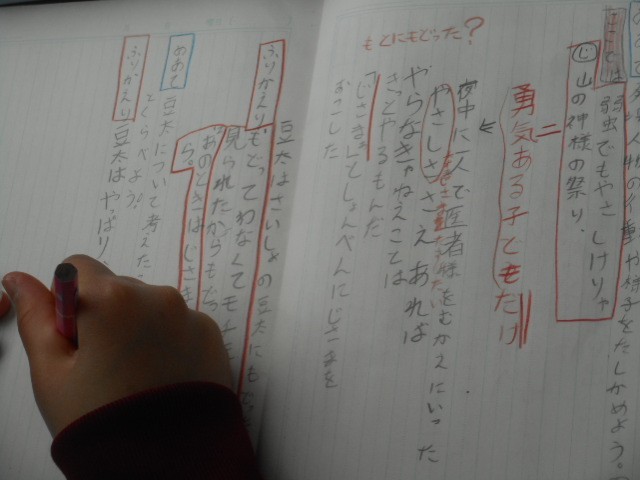 ここでは
弱虫でもやさしけりゃ
山の神様の祭り.
勇気ある子どもだけ
夜中に一人で医者様をむかえにいった
やさしささえあれば
やらなきゃねえことは
きっとやるもんだ
じさまぁ
としょんべんにじさまを
おこした
もとにもどった?
ふりかえり
豆太はさいしょの豆太に
もどってわなくてモチモチ
見られたからもどっ
あのときはじさま
ら。
めあて
豆太について考えた
くらべよう。
ふりかえり
豆太はやっぱり